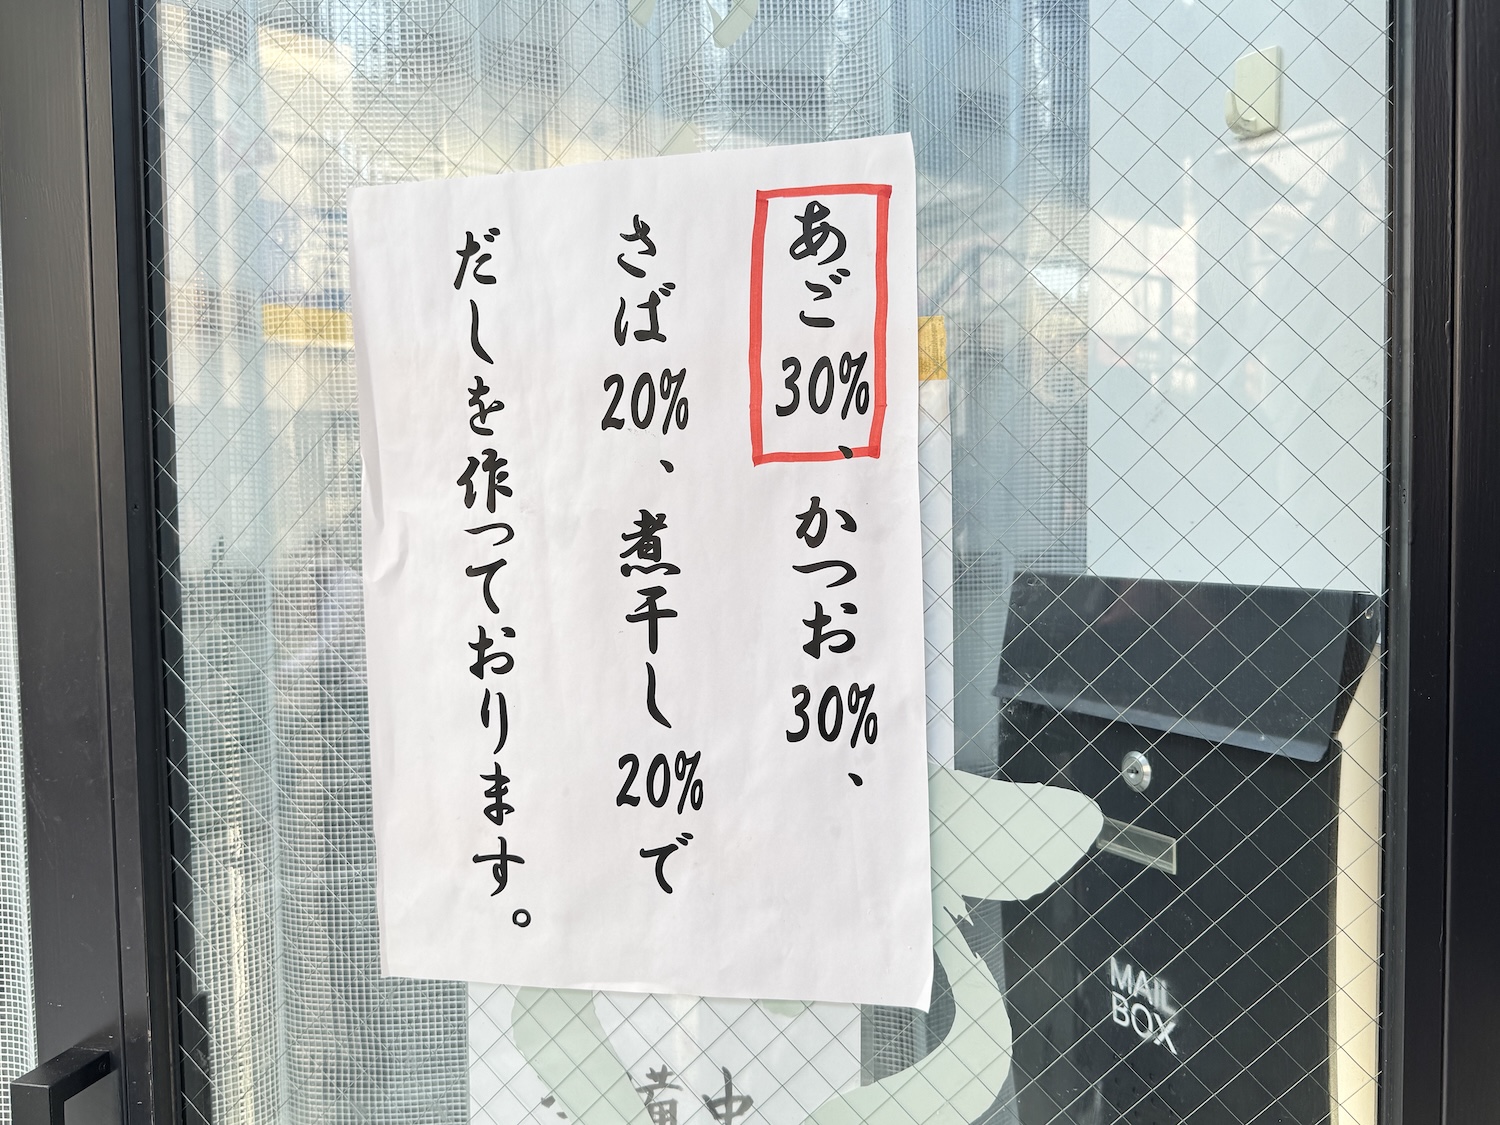 あご30%、かつお30%、
さば20%、煮干し20%で
だしを作っております。
MAIL
BOX
黄中